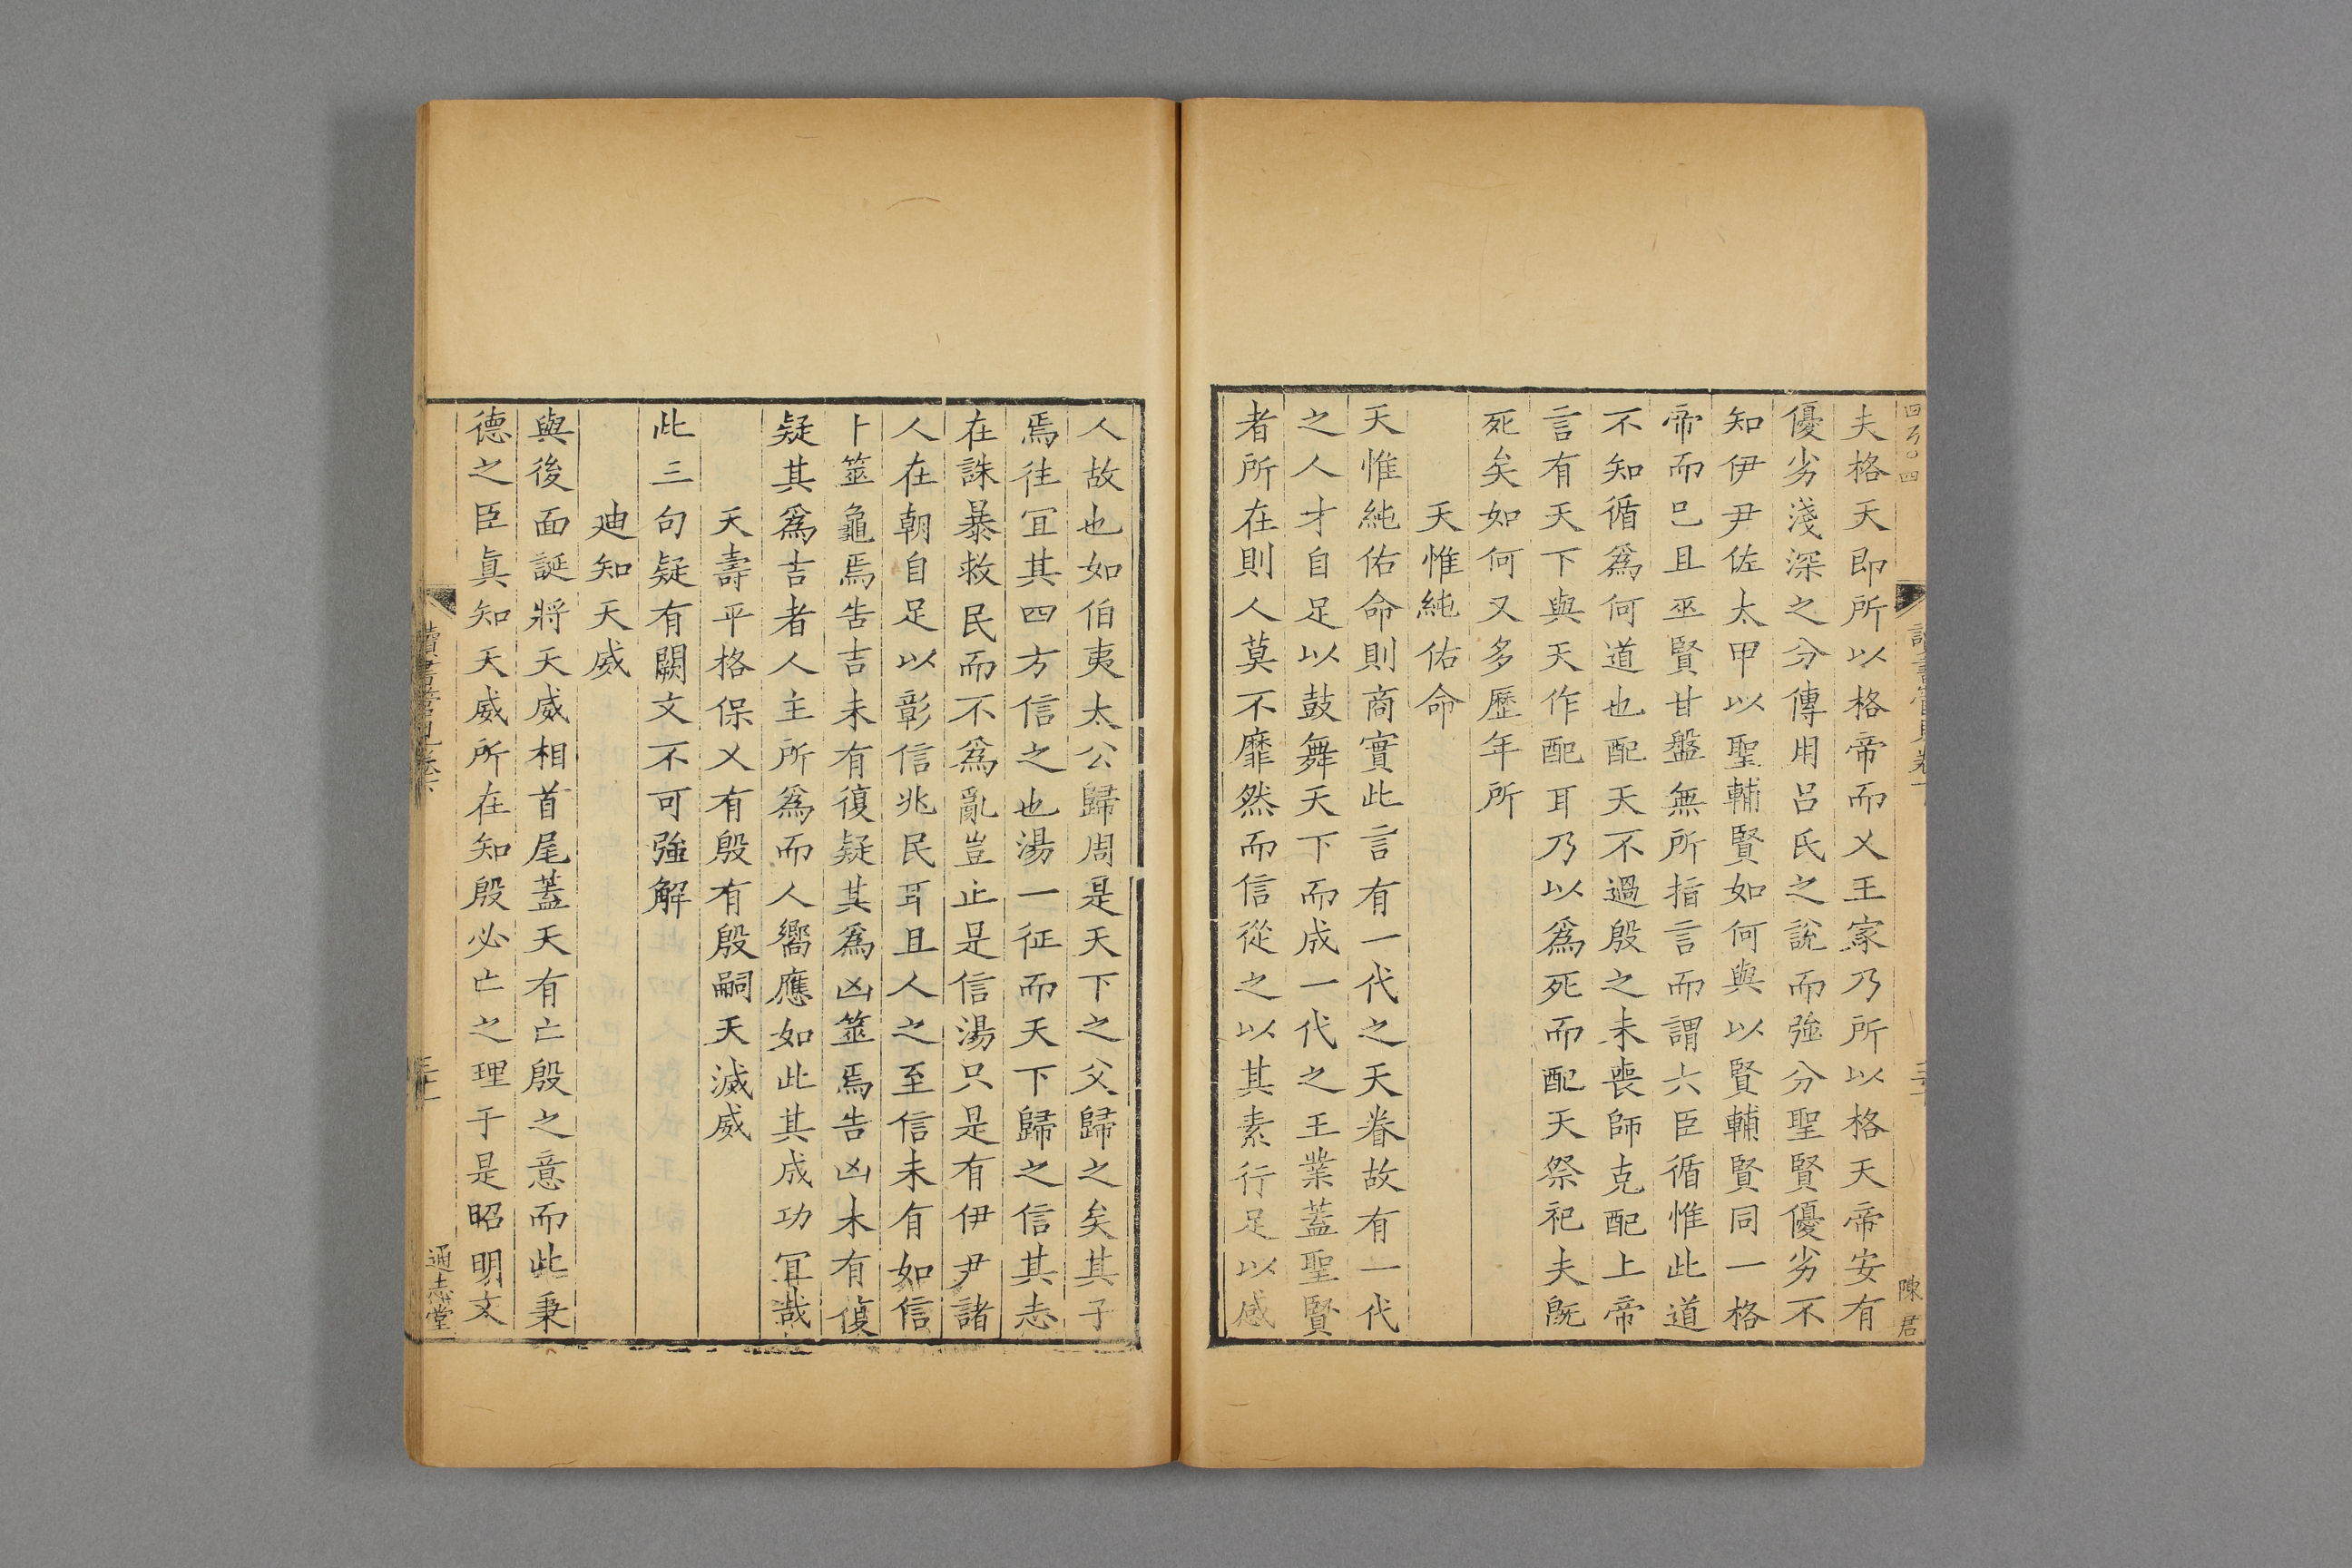 夫格天即所以格帝而乂王家乃所以格天帝安有
優劣淺深之分傳用呂氏之說而強分聖賢優劣不
知伊尹佐太甲以聖輔賢如何與以賢輔賢同一格
帝而已且巫賢甘盤無所指言而謂六臣循惟此道
不知循爲何道也配天不過殷之未喪師克配上帝
言有天下與天作配耳乃以爲死而配天祭祀夫旣
死矣如何又多歷年所
天惟純佑命
天惟純佑命則商實此言有一代之天眷故有一代
之人才自足以鼓舞天下而成一代之王業蓋聖賢
者所在則人莫不靡然而信從之以其素行足以感
陳君
人故也如伯夷太公歸周是天下之父歸之矣其子
焉往宜其四方信之也湯一征而天下歸之信其志
在誅暴救民而不爲亂豈止是信湯只是有伊尹諸
人在朝自足以彰信兆民耳且人之至信未有如信
卜筮龜焉告吉未有復疑其爲凶筮焉告凶未有復
疑其爲吉者人主所爲而人嚮應如此其成功宜哉
天壽平格保乂有殷有殷嗣天滅威
此三句疑有闕文不可強解
迪知天威
與後面誕將天威相首尾蓋天有亡殷之意而此秉
德之臣眞知天威所在知殷必亡之理于是昭明文
通志堂